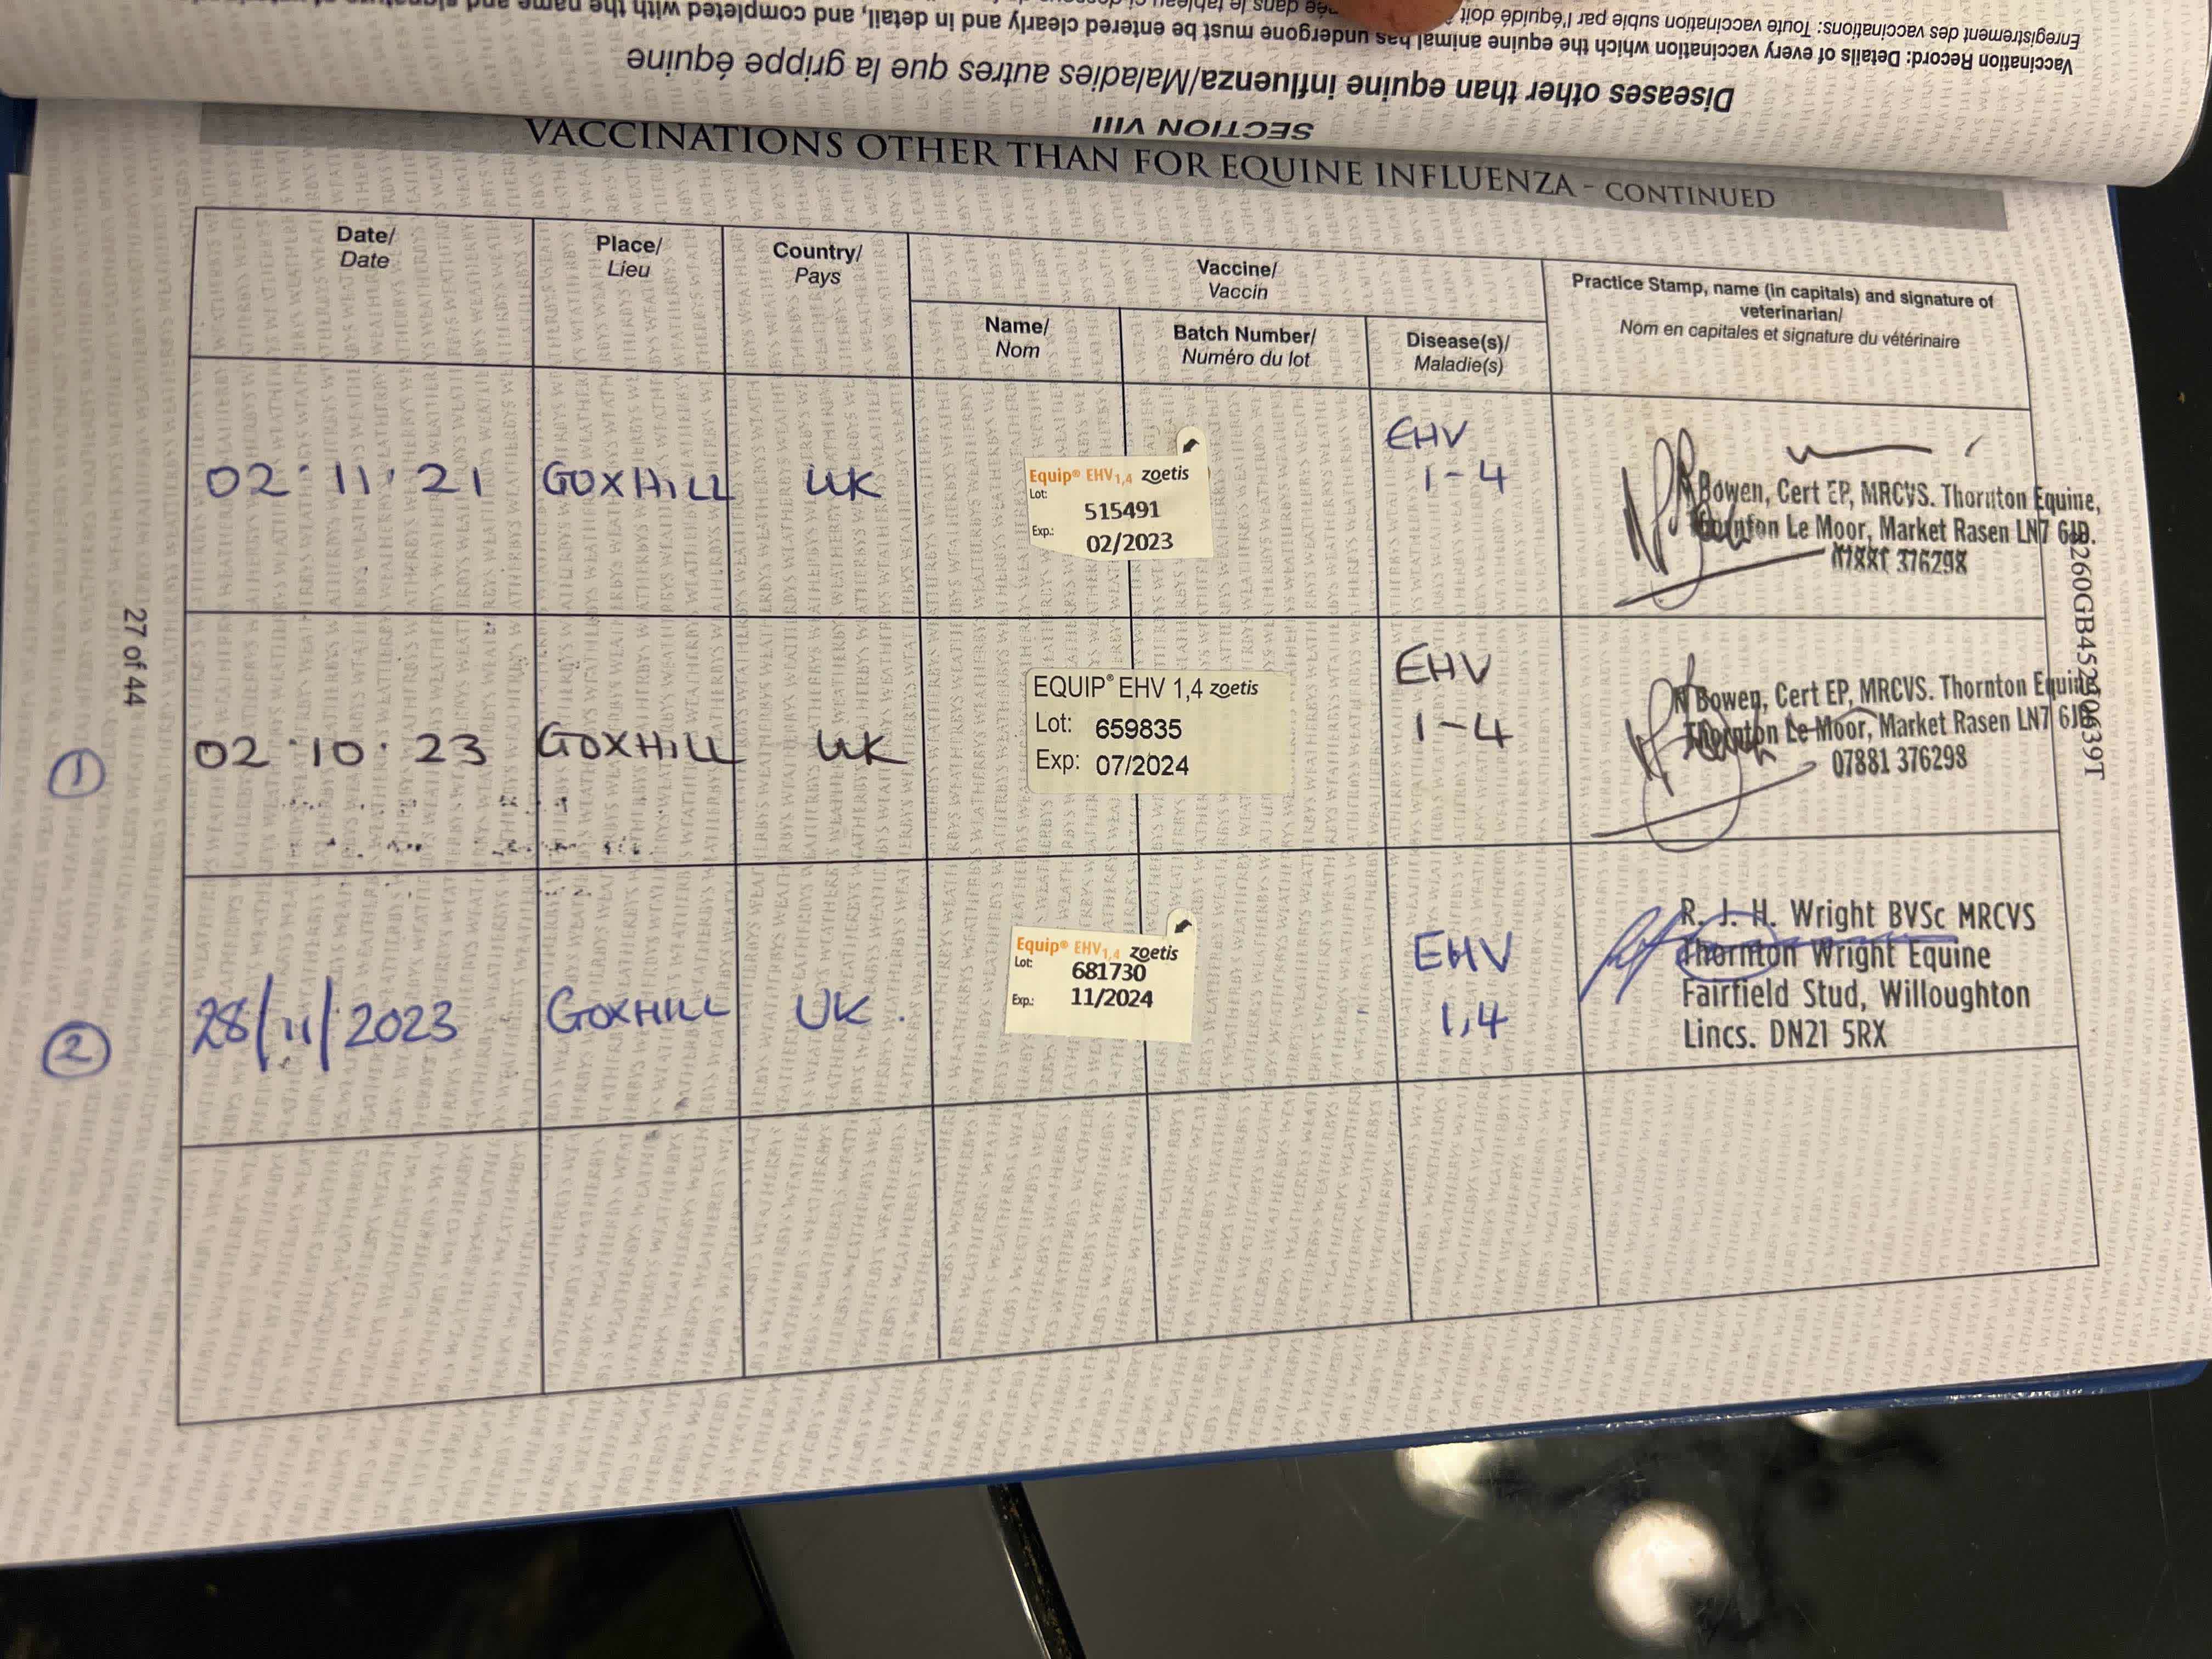 Vaccination Record: Details of every vaccination which the equine animal has undergone must be entered clearly and in detail, and completed with the name and signature of
Enregistrement des vaccinations: Toute vaccination subie par l'équidé doit
dans le tableau
SECTION VIII
Diseases other than equine influenza/Maladies autres que la grippe équine
VACCINATIONS OTHER THAN FOR EQUINE INFLUENZA - CONTINUED
Date/
Date
Place/
Lieu
Country/
Pays
Vaccine/
Vaccin
Name/
Nom
Batch Number/
Numéro du lot
Disease(s)/
Maladie(s)
Practice Stamp, name (in capitals) and signature of
veterinarian/
Nom en capitales et signature du vétérinaire
02·11·21
GOXHILL
UK
Equip® EHV1,4 zoetis
Lot:
515491
Exp.:
02/2023
EHV
1-4
Bowen, Cert EP, MRCVS. Thornton Equine,
Thornton Le Moor, Market Rasen LN7 6JD.
07881 376298
1
02·10·23
GOXHILL
UK
EQUIP® EHV 1,4 zoetis
Lot: 659835
Exp: 07/2024
EHV
1-4
N Bowen, Cert EP, MRCVS. Thornton Equine,
Thornton Le Moor, Market Rasen LN7 6JD
07881 376298
2
28/11/2023
GOXHILL
UK.
Equip® EHV1,4 zoetis
Lot:
681730
Exp.:
11/2024
EHV
1,4
R. J. H. Wright BVSc MRCVS
Thornton Wright Equine
Fairfield Stud, Willoughton
Lincs. DN21 5RX
27 of 44